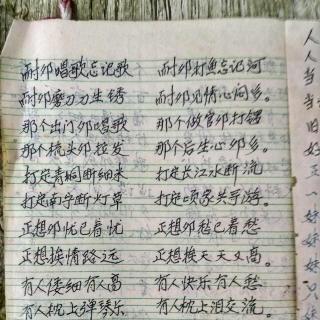 耐卯唱歌忘记歌 耐卯打鱼忘记河
耐卯磨刀刀生锈 耐卯见情心同乡。
那个出门卯唱歌 那个做官卯打锣
那个梳头卯拉发 那个后生心卯多。
打定青铜断细米 打定长江水断流
打定南宁断灯草 打定 家共手游。
正想卯忧已着忧 正想卯愁已着愁
正想挨情路远 正想挨天天又高。
有人倭细有人高 有人快乐有人愁
有人枕上弹琴乐 有人枕上泪交流。
人
人
当
当
旧
好
正
一
好
好
好
只